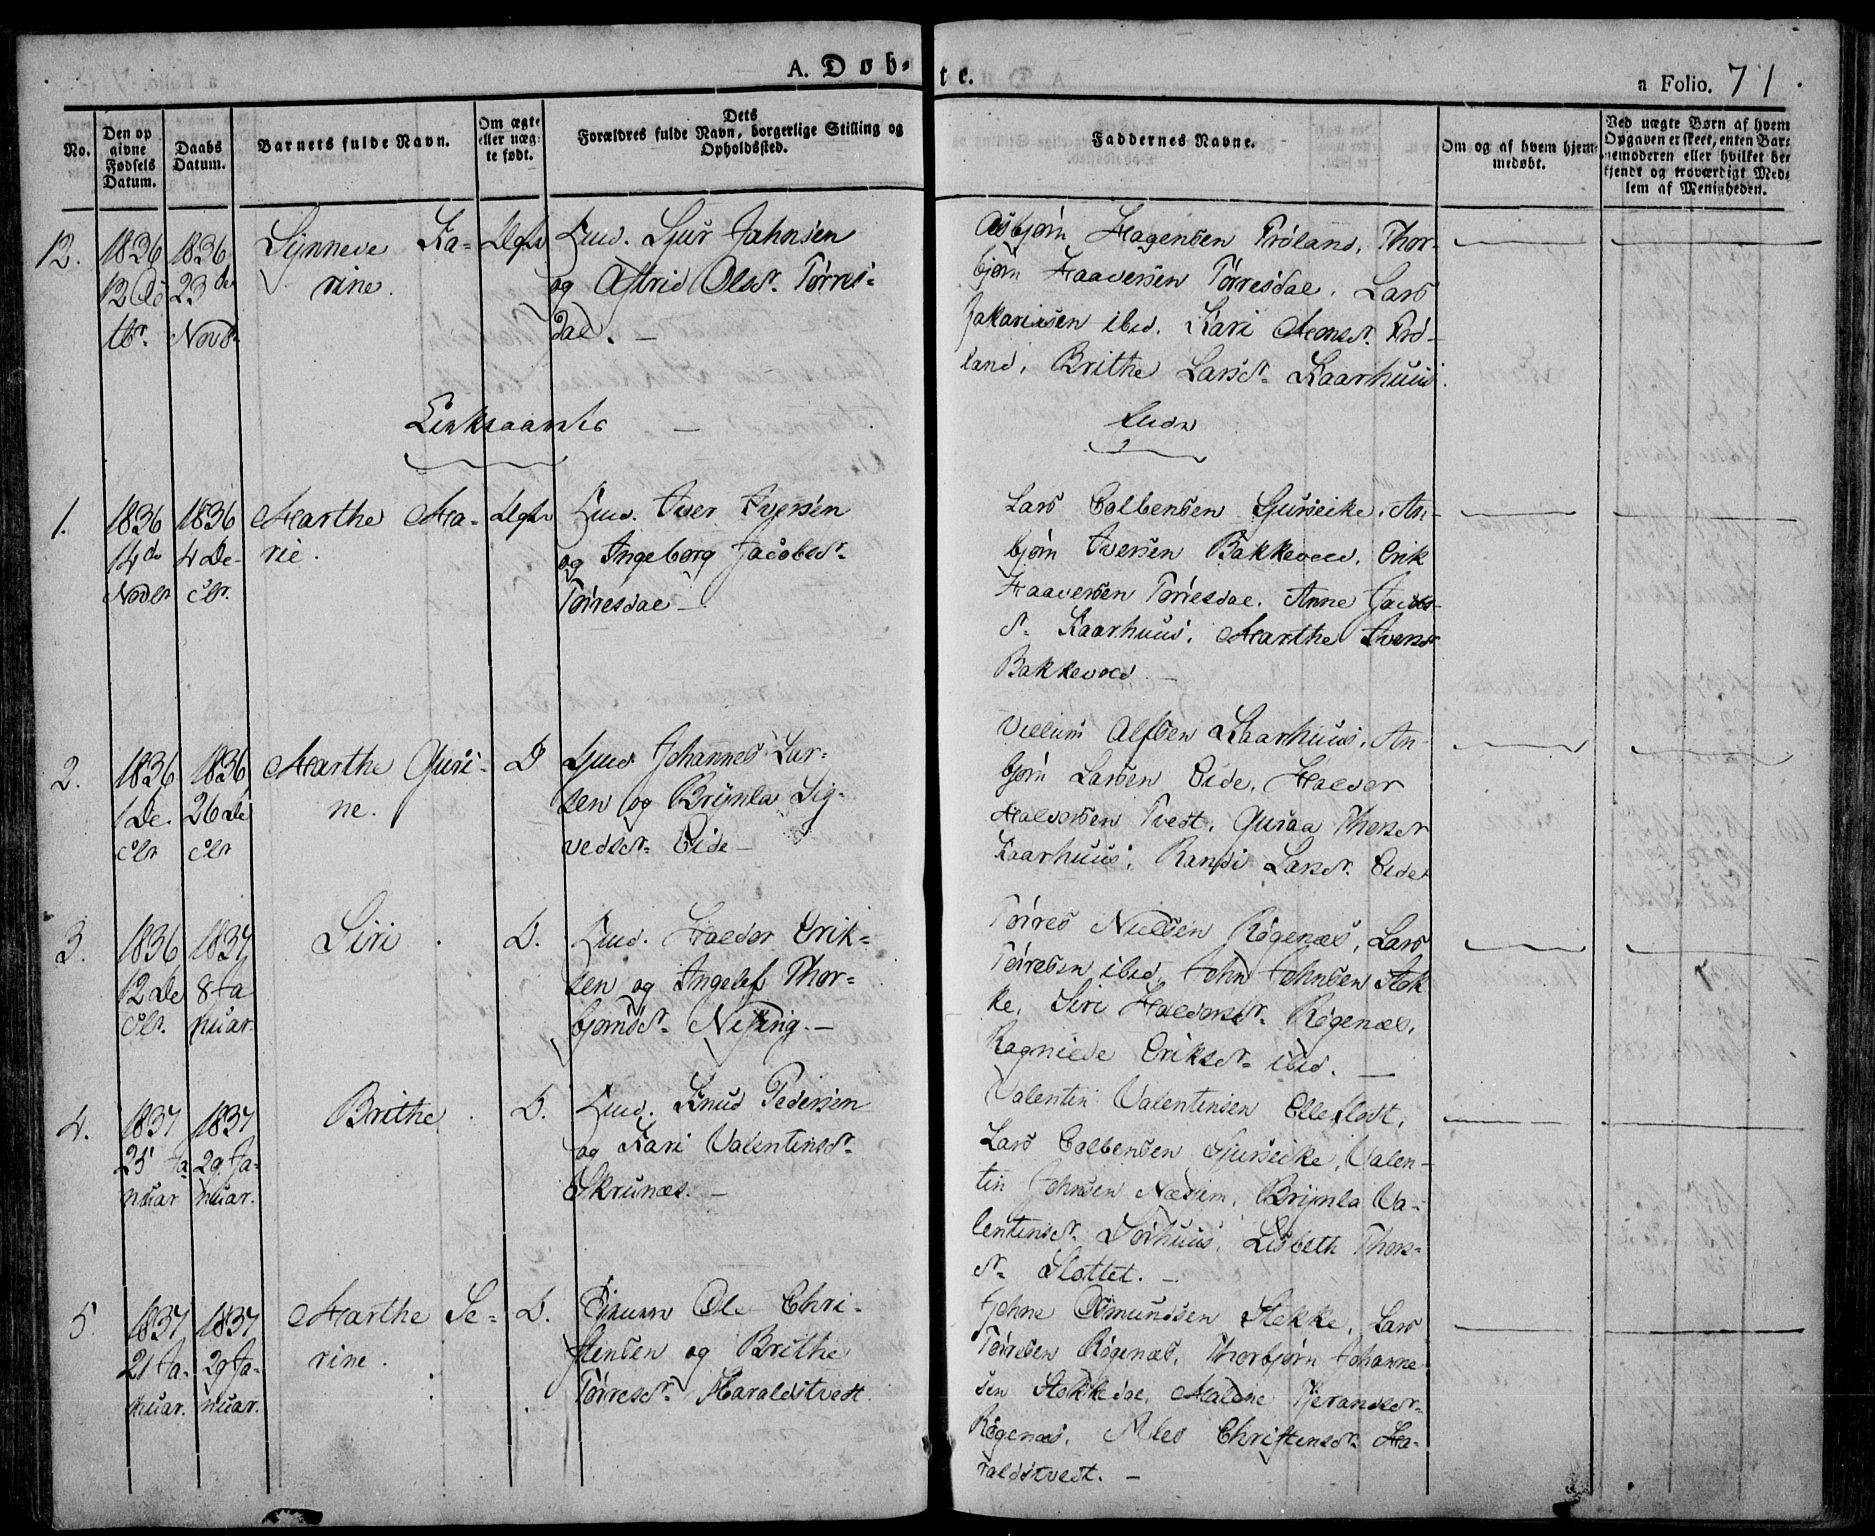 A. Døb-
te.
a Folio. 71.
No.
Den op
givne
Fødsels
Datum.
Daabs
Datum.
Barnets fulde Navn.
Om ægte
eller uæg-
te født.
Dets
Forældres fulde Navn, borgerlige Stilling og
Opholdssted.
Faddernes Navne.
Om og af hvem hjem-
medøbt.
Ved uægte Børn af hvem
Opgaven er skeet, enten Bar-
nemoderen eller hvilket be-
kjendt og troværdigt Med-
lem af Menigheden.
12.
1836
12
1836
23de
Novbr.
Synneve Ka-
rine.
Sjur Johnsen
og Astrid Olsdr. Tørres-
dal. -
Asbjørn Hagensen Frøland, Thor-
bjørn Haaversen Tørresdal, Lars
Zakariasen ibid. Kari Monsdr. Frø-
land, Brithe Larsdr. Kaarhuus.
1.
1836
14de
Novbr
1836
4 De-
cbr.
Marthe Ma-
rie.
Iver Iversen
og Ingeborg Jacobsdr.
Tørresdal -
Lars Colbensen Gjerseike, An-
bjørn Iversen Bakkevold, Erik
Haaversen Tørresdal, Anne Jacobs-
dr. Kaarhuus, Marthe Iversdr
Bakkevold. -
2.
1836
1 De-
cbr
1836
26 De
cbr
Marthe Guri-
ne.
D
Johannes Lar-
sen og Brynla Sig-
vedsdr. Eide -
Villum Alfsen Kaarhuus, An-
bjørn Larsen Eide, Haldor
Halvorsen Tvedt, Guraa Thorsdr
Kaarhuus, Randi Larsdr. Eide
3.
1836
12 De
cbr.
1837
8 Ja
nuar.
Siri
D.
Haldor Erik-
sen og Ingelef Thor-
bjørnsdr. -
Tørres Nielsen Røgenæs, Lars
Tørresen ibid, John Johnsen Stok
ke, Siri Haldorsdr. Røgenæs,
Ragnilde Eriksdr. ibid. -
4.
1837
25 Ja
nuar
1837
29 Ja-
nuar.
Brithe
D.
Knud Pedersen
og Kari Valentinsdr.
Skrunæs. -
Valentin Valentinsen
Lars Colbensen Gjerseike, Valen-
tin Johnsen Næsem, Brynla Va-
lentinsdr. Sørhuus, Lisbeth Thors-
dr. Slottet. -
5.
1837
21 Ja-
nuar.
1837
29 Ja-
nuar.
Marthe Se-
rine.
D.
Ole Chri-
stensen og Brithe
Tørresdr. Haraldstvedt
Johne Osmundsen Stokke, Lars
Tørresen Røgenæs, Thorbjørn Johanne
sen Stokkedal, Malene
Røgenæs, Ales Christensdr. Ha-
raldstvedt. -